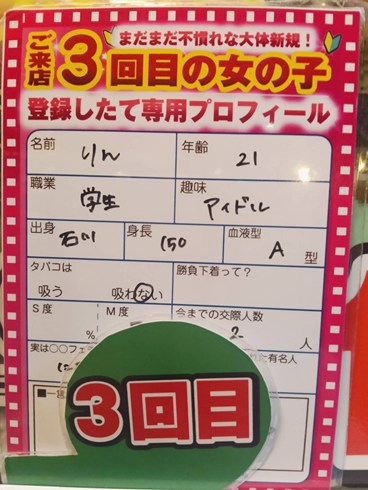 まだまだ不慣れな大体新規!
ご来店3回目の女の子
登録したて専用プロフィール
名前 りん 年齢 21
職業 学生 趣味 アイドル
出身 石川 身長 150 血液型 A 型
タバコは 勝負下着って?
吸う 吸わない
S度 M度 今までの交際人数
% 2 人
実は○○フェ た有名人
3回目
■一言